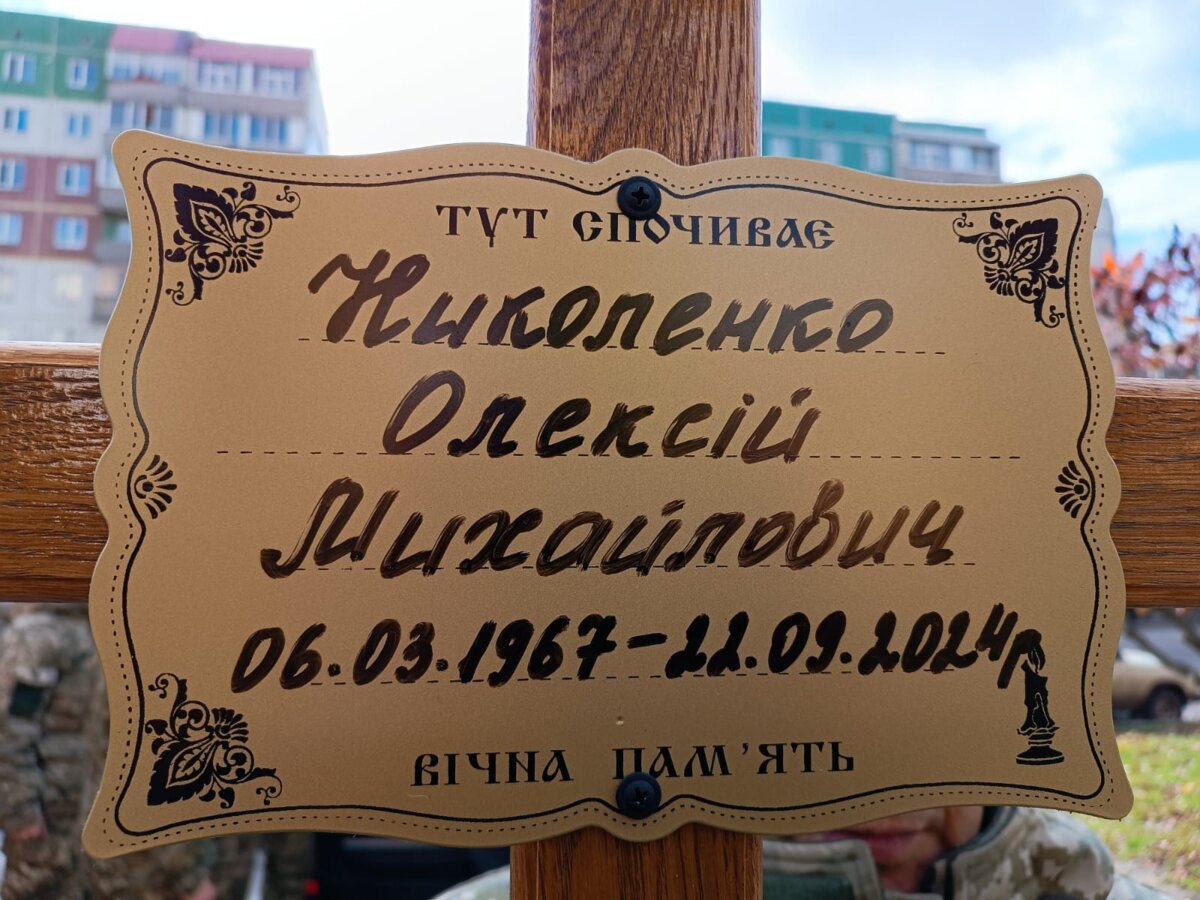 ТУТ СПОЧИВАЄ
Николенко
Олексій
Михайлович
06.03.1967-22.09.2024р
ВІЧНА ПАМ'ЯТЬ